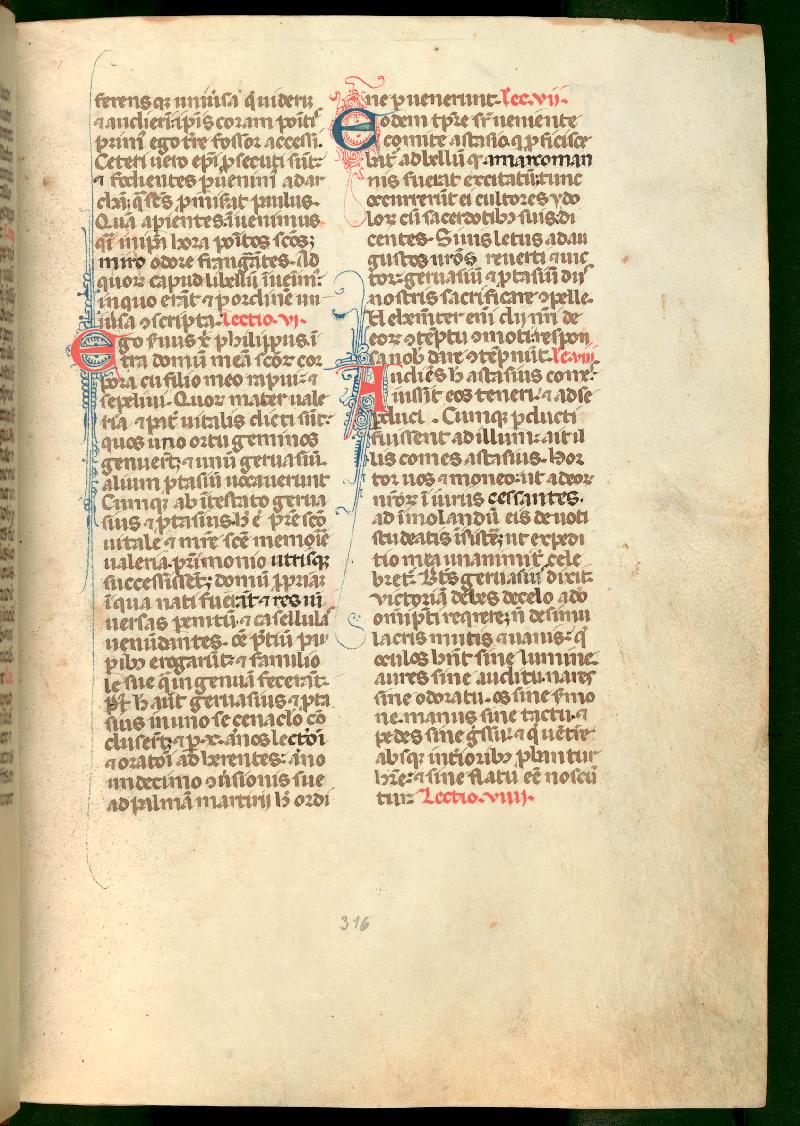 ferensqȝ uniu͛sa q̃ uider̄t
⁊ audier̄t ip̄is coram posit̄
prim̄ ego t̄re fossor accessi.
Ceteri uero ep̄i ꝓsecuti sūt.
⁊ fodientes ꝑuenim̄ ad ar
chā. q̄ sc̄s ꝓmis̄at paulus.
Quā apientes. ī uenimus
q̄i in ip̄a hora poītos sc̄os;
miro odore fragrātes. Ad
quoꝝ capud libellū īuenim̄.
in quo erāt ⁊ ꝑ ordinē un
iu͛sa ɔscripta. Lectio. vi.
Ego s̄uus xp̄i philippus. ī
tra domū meā sc̄oꝝ cor
pora cū filio meo rapui. ⁊
sepeliui. Quoꝝ mater uale
ria ⁊ pat͛ vitalis dicti sūt.
quos uno ortu geminos
genuer̄t; ⁊ unū geruasiū.
alium ꝓtasiū uocauerunt
Cumqȝ ab ītestato gerua
sius ⁊ ꝓtasius. h̄ ē pr̄e sc̄o
uitale ⁊ mr̄e sc̄e memoriē
ualeria. pr̄imonio utrisqȝ
successissēt; domū ꝓpriaꝫ
ī qua nati fuer̄āt ⁊ res uī
uersas penitū. ⁊ casellula
uenūdantes. ōē p̄tiū pau
pibꝰ erogarūt. ⁊ familio
le sue q̄ ingenuā fecer̄āt.
Post h̄ aūt geruasius ⁊ ꝓta
sius in uno se cenaclo cō
cluser̄t; ⁊ ꝑ. x. ānos lectōi
⁊ oratōi adherentes. āno
undecimo ɔu͛sionis sue
ad palmā martirij h̄ ordi
ne ꝑuenerunt. Lec. vii.
Eodem tp̄re sr̄ ueniente
comite astasio. q̄ ꝓficisce
bat͛ ad bellū q̄ a marcoman
nis fuerat excitatū. tunc
occurrer̄ūt ei cultores ydo
loꝝ cū sacerdotibꝰ suis. di
centes. Si uis letus ad au
gustos ur̄os reuerti ⁊ uic
tor. geruasiū ⁊ ꝓtasiū diis
nostris sacrificare ɔpelle.
Uehem̄ter eni dii nri de
eoꝝ ɔtēptu ɔmoti. respon
sa nob̄ dare ɔtēpn̄ūt. Lc. viii.
Audiēs h̄ astasius com̄.
iussit eos teneri. ⁊ ad se
ꝑduci. Cumqȝ ꝑducti
fuissent ad illum. ait il
lis comes astasius. Hor
tor uos ⁊ moneo. ut a deoꝝ
nr̄oꝝ īiuriis cessantes.
ad īmolandū eis deuoti
studeatis īsisteꝫ. ut expedi
tio mea unanimit͛ cele
bret͛. Bt̄s geruasiū dixit.
victoriā debes de celo a do
omīpti req̄rere; n̄ de simu
lacris mutis ⁊ uanis. q̄
oculos hn̄t sine lumine.
aures sine auditu. nares
sine odoratu. os sine s͛mo
ne. manus sine tactu. ⁊
pedes sine g̃ssu. ⁊ q̄ uētre
absqȝ int̄ioribꝰ ꝓbantur
h̄re. ⁊ sine flatu eē noscū
tur. Lectio. viiii.
316